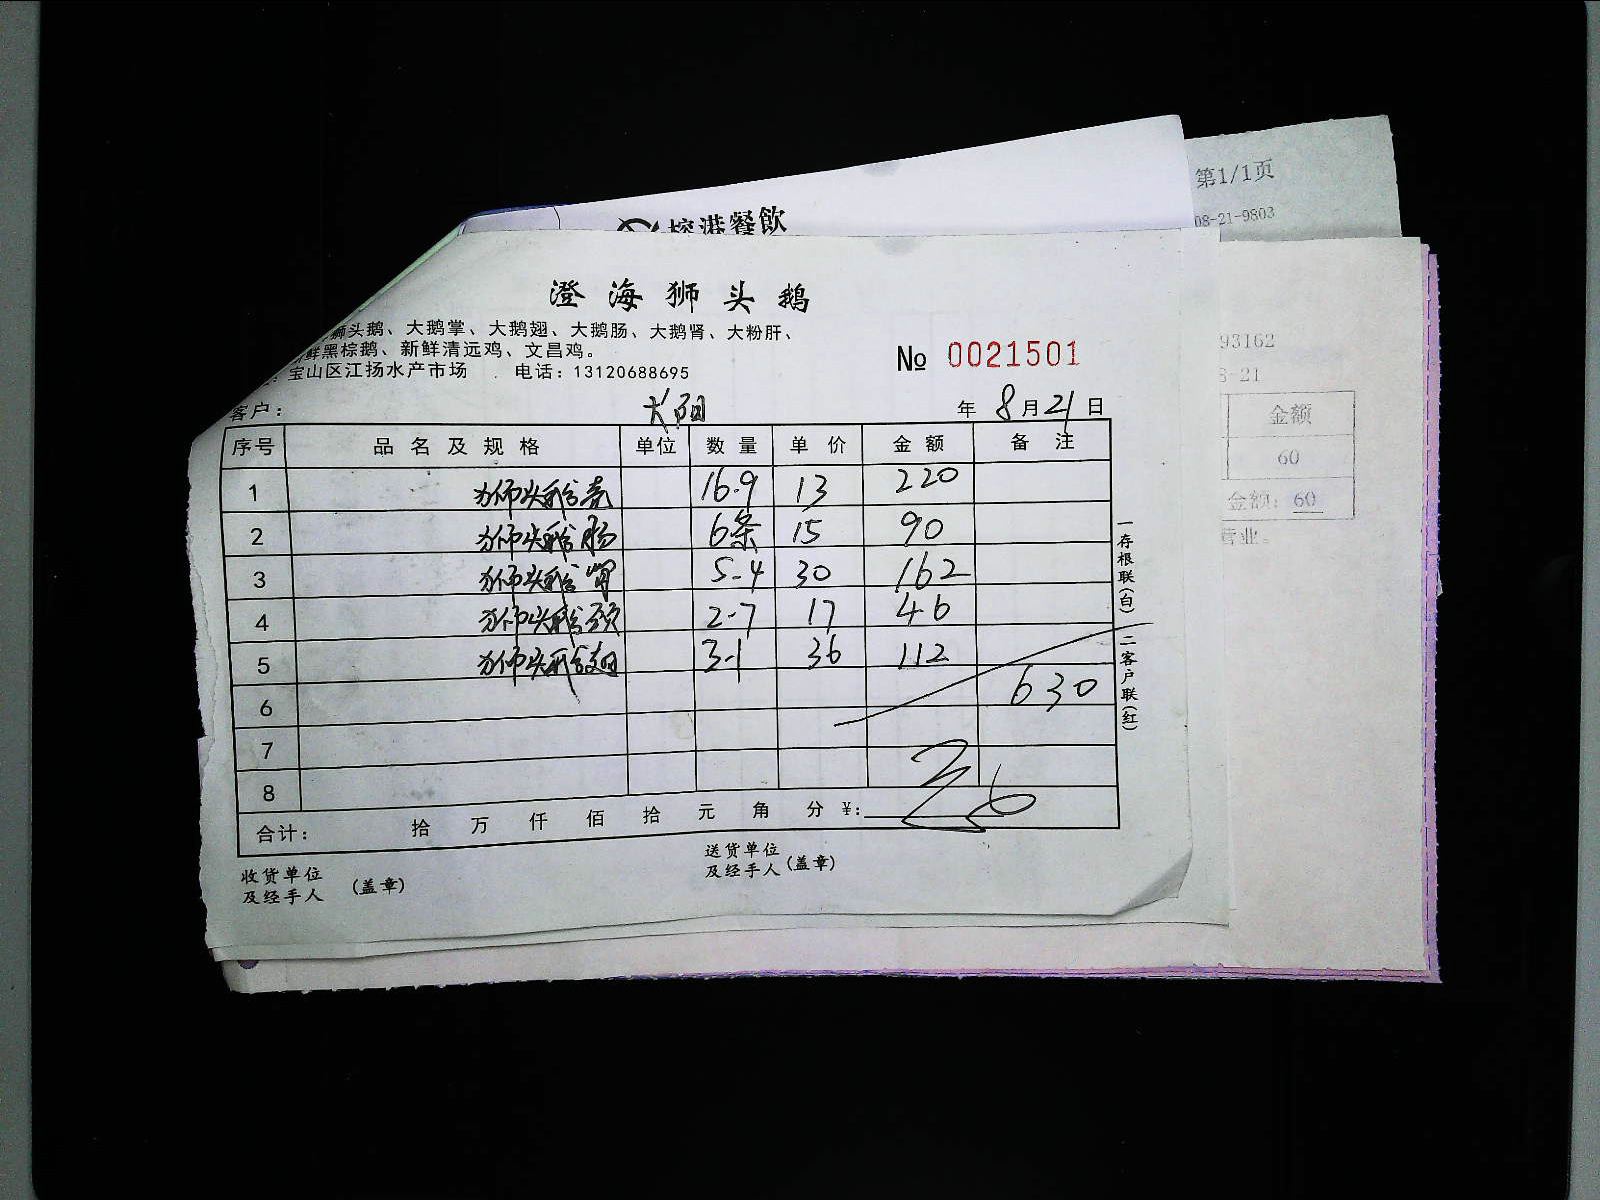 第1/1页
08-21-9803
榕港餐飲
澄海狮头鹅
狮头鹅、大鹅掌、大鹅翅、大鹅肠、大鹅肾、大粉肝、
鲜黑棕鹅、新鲜清远鸡、文昌鸡。
宝山区江扬水产市场 电话：13120688695
№ 0021501
93162
8-21
客户： 大阳 年 8月21日
序号 品名及规格 单位 数量 单价 金额 备注
1 狮头鹅壳 16.9 13 220
2 狮头鹅肠 6条 15 90
3 狮头鹅肾 5-4 30 162
4 狮头鹅颈 2-7 17 46
5 狮头鹅翅 3-1 36 112
6 630
7
8
合计： 拾 万 仟 佰 拾 元 角 分 ¥:
收货单位
及经手人 (盖章)
送货单位
及经手人 (盖章)
一存根联(白) 二客户联(红)
金额
60
金额：60
营业。